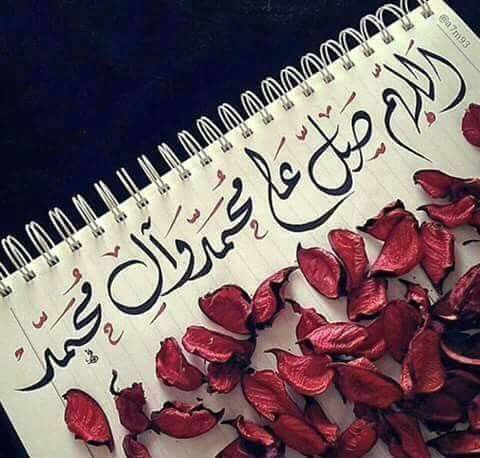 اللهم صل على محمد وآل محمد
@a7m93